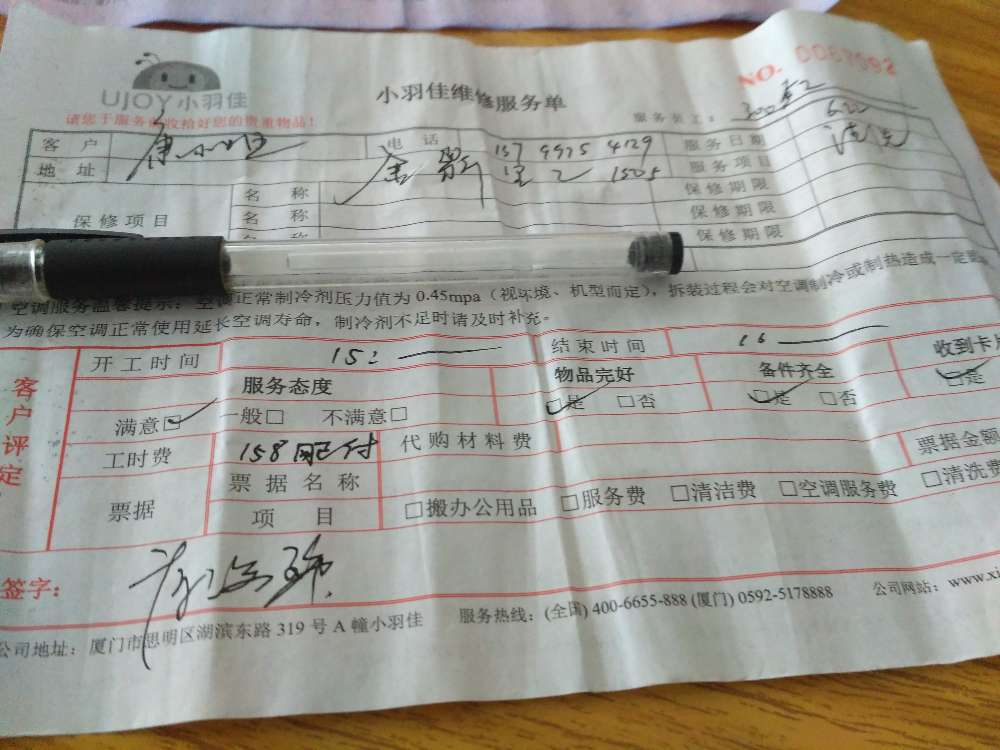 UJOY小羽佳
小羽佳维修服务单
NO. 0087092
请您于服务前收拾好您的贵重物品!
服务员工:
客户
电话 157 9975 4129
服务日期 6.22
地址
1505
服务项目 清洗
保修项目
名称
保修期限
名称
保修期限
名称
保修期限
空调服务温馨提示:空调正常制冷剂压力值为 0.45mpa(视环境、机型而定),拆装过程会对空调制冷或制热造成一定
为确保空调正常使用延长空调寿命,制冷剂不足时请及时补充。
客户评定
开工时间 15:
结束时间 16
服务态度
物品完好
备件齐全
收到卡片
满意☑ 一般□ 不满意□
☑是 □否
☑是 □否
☑是
工时费 158 网已付
代购材料费
票据
票据名称
票据金额
项目 □搬办公用品 □服务费 □清洁费 □空调服务费 □清洗费
签字:
公司地址:厦门市思明区湖滨东路 319 号 A 幢小羽佳
服务热线:(全国) 400-6655-888 (厦门) 0592-5178888
公司网站:www.xi